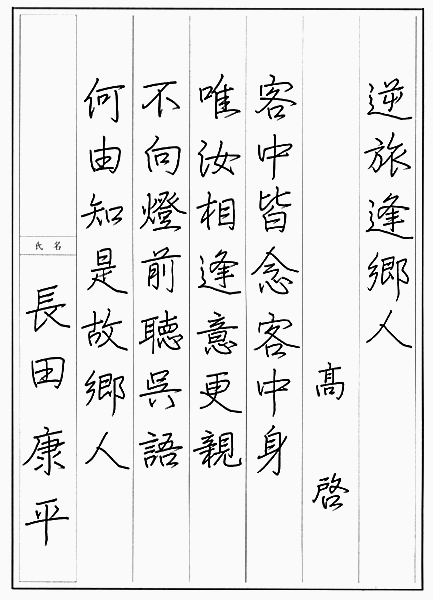 逆旅逢鄉人
高啓
客中皆念客中身
唯汝相逢意更親
不向燈前聽呉語
何由知是故鄉人
氏名
長田康平